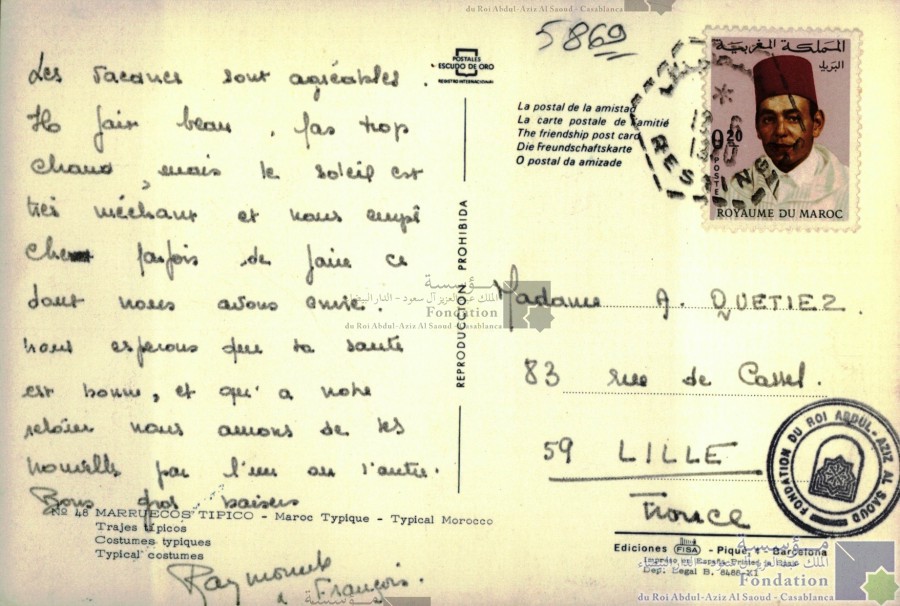 du Roi Abdul-Aziz Al Saoud - Casablanca
5869
POSTALES
ESCUDO DE ORO
REGISTRO INTERNACIONAL
Les vacances sont agréables.
Il fait beau, pas trop
chaud, mais le soleil est
très méchant et nous empê
che parfois de faire ce
dont nous avons envie.
Nous espérons que ta santé
est bonne, et qu'à notre
retour nous aurons de tes
nouvelles par l'un ou l'autre.
Bons gros baisers
Raymonde
François.
La postal de la amistad
La carte postale de l'amitié
The friendship post card
Die Freundschaftskarte
O postal da amizade
المملكة المغربية
البريد
0,20
POSTES
ROYAUME DU MAROC
REPRODUCCION PROHIBIDA
مؤسسة
الملك عبد العزيز آل سعود - الدار البيضاء
Fondation
du Roi Abdul-Aziz Al Saoud - Casablanca
Madame A. QUETIEZ.
83 rue de Cassel.
59 LILLE
France
FONDATION DU ROI ABDUL-AZIZ AL SAOUD
Nº 48 MARRUECOS TIPICO - Maroc Typique - Typical Morocco
Trajes típicos
Costumes typiques
Typical costumes
Ediciones FISA - Piqué, 4 - Barcelona
Impreso en España-Printed in Spain
Dep. Legal B. 8486-XI
مؤسسة
Fondation
du Roi Abdul-Aziz Al Saoud - Casablanca